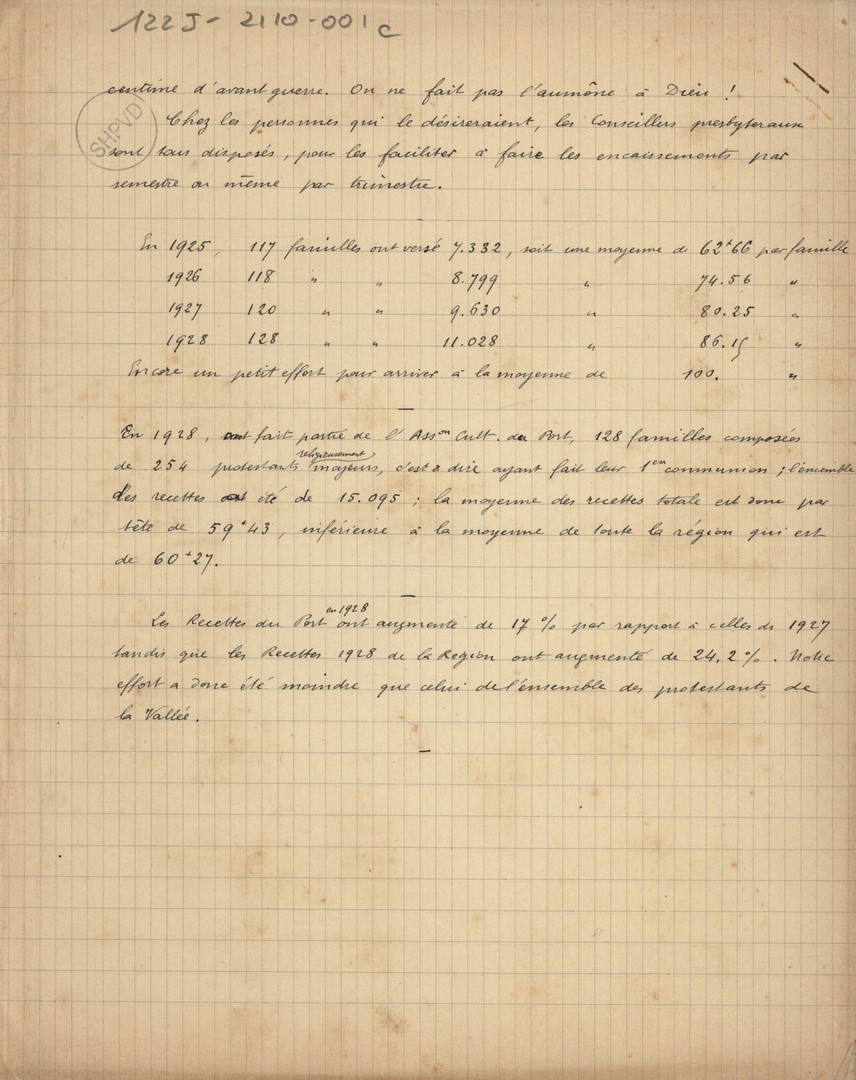 122J - 2110 - 001c
SHPVD
centime d'avant guerre. On ne fait pas l'aumône à Dieu !
Chez les personnes qui le désireraient, les Conseillers presbyteraux
sont tous disposés, pour les faciliter à faire les encaissements par
semestre ou même par trimestre.
En 1925, 117 familles ont versé 7.332, soit une moyenne de 62f66 par famille
1926 118 " " 8.799 " 74.56 "
1927 120 " " 9.630 " 80.25 "
1928 128 " " 11.028 " 86.15 "
Encore un petit effort pour arriver à la moyenne de 100. "
En 1928, ont fait partie de l'Asson Cult. du Port, 128 familles composées
religieusement
de 254 protestants majeurs, c'est à dire ayant fait leur 1ere communion ; l'ensemble
des recettes ont été de 15.095 ; la moyenne des recettes totale est donc par
tête de 59f43, inférieure à la moyenne de toute la région qui est
de 60f27.
en 1928
Les Recettes du Port ont augmenté de 17 % par rapport à celles de 1927
tandis que les Recettes 1928 de la Région ont augmenté de 24,2 %. Notre
effort a donc été moindre que celui de l'ensemble des protestants de
la Vallée.